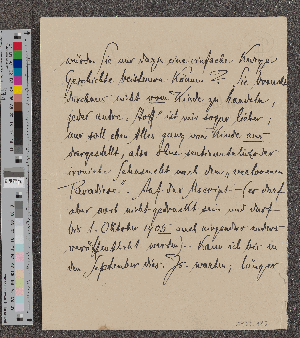 würden Sie nur dazu eine einfache kurze
Geschichte beisteuern können? Sie braucht
durchaus nicht vom Kinde zu handeln,
jeder andre „Stoff" ist mir sogar lieber;
nur soll eben Alles ganz vom Kinde aus
dargestellt, also ohne sentimentale oder
ironische Sehnsucht nach dem „verlorenen
Paradiese". Auf das Mscript (es darf
aber noch nicht gedruckt sein und darf
bis 1. Oktober 1905 auch nirgendwo anders
veröffentlicht werden) kann ich bis in
den September dies. Js. warten; länger